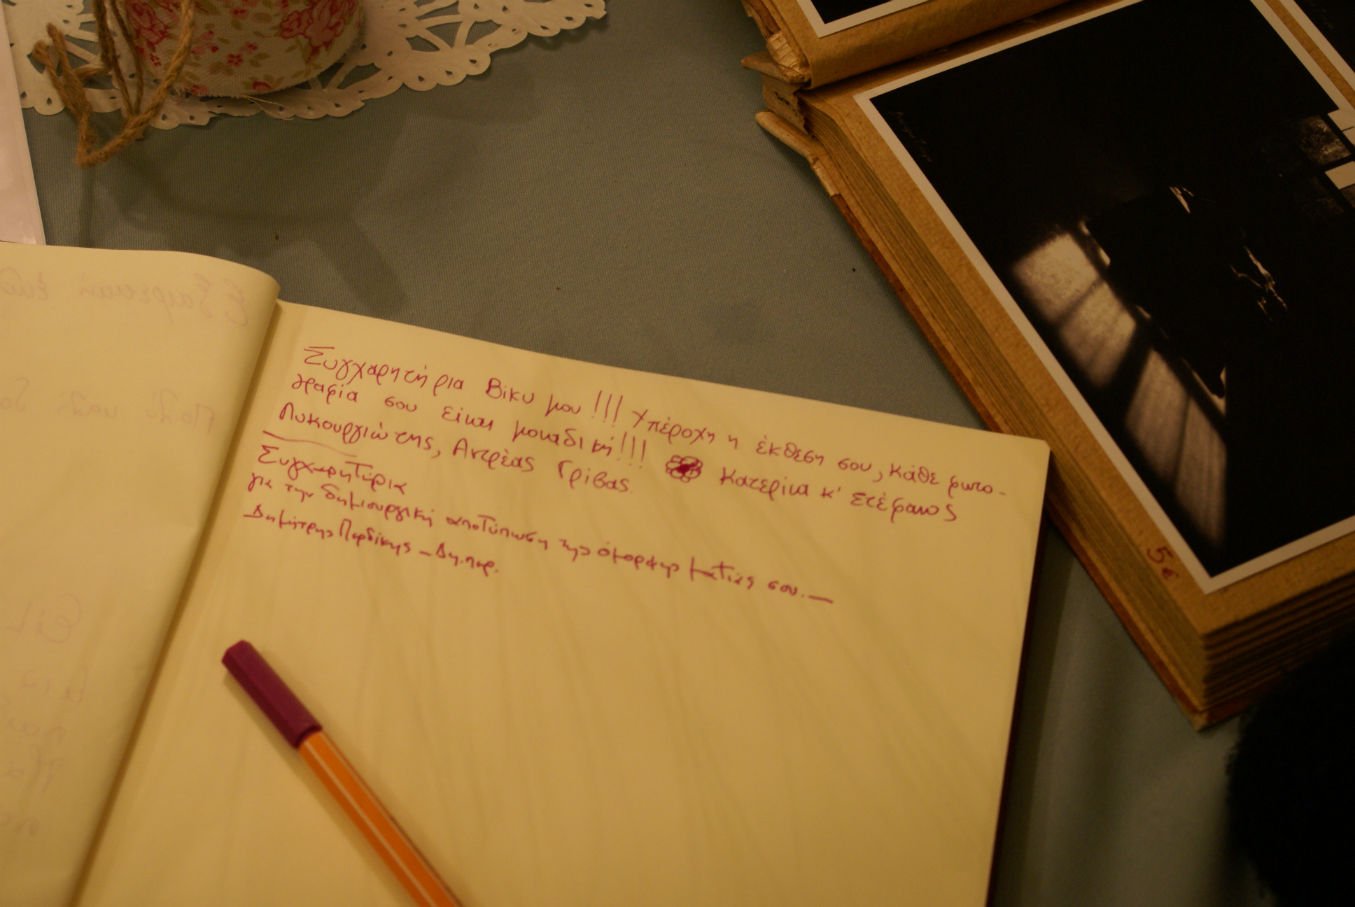 Συγχαρητήρια Βίκυ μου!!! Υπέροχη η έκθεση σου, κάθε φωτο-
γραφία σου είναι μοναδική!!! Κατερίνα κ' Στέφανος
Λυκουργιώτης, Αντρέας Γρίβας.
Συγχαρητήρια
για την δημιουργική αποτύπωση της όμορφης ματιάς σου.—
Δημήτρης Περδίκης – Δη.περ.
5€